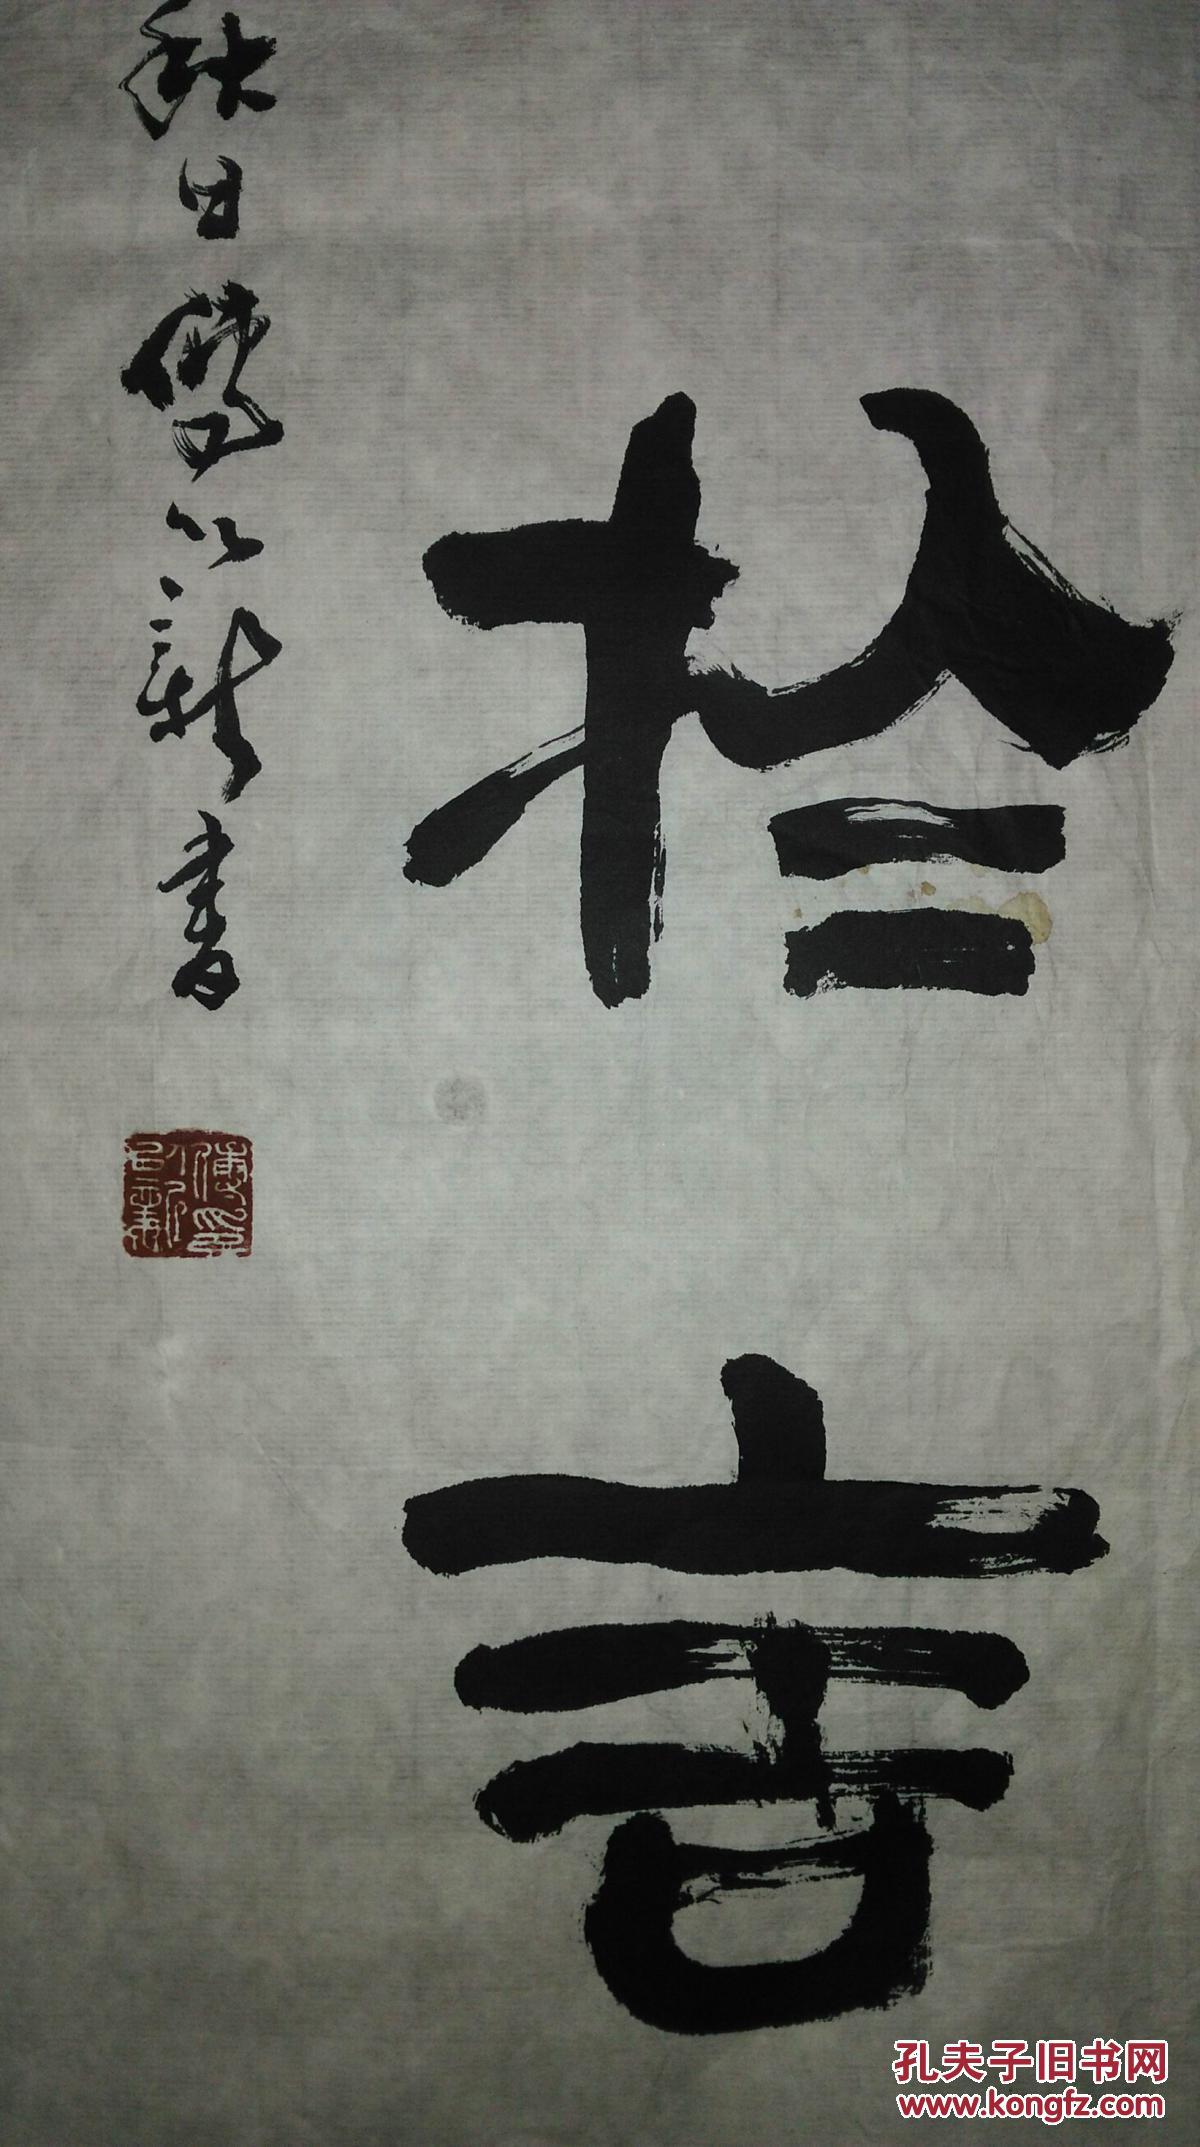 扵言
秋日傅以新書
傅印以新
孔夫子旧书网
www.kongfz.com